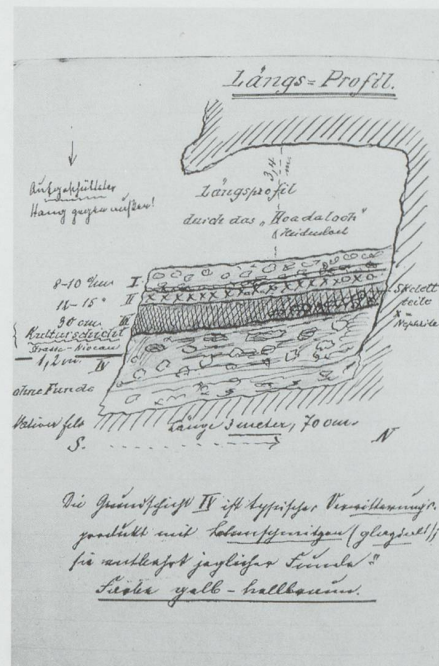 Längs=Profil.
Aufgeschütteter
Hang gegen außen!
3,4 m
Längsprofil
durch das „Hoadaloch"
Heidenloch
8-10 cm I
12-15 " II
30 cm III
Kulturschicht
Niveau
1,2 m. IV
ohne Funde
Skelett
teile
x =
Länge 3 meter, 70 cm.
S. N
Die Grundschicht IV ist typisches Verwitterungs-
produkt mit (glazial!)
sie entbehrt jeglicher Funde!!
Farbe gelb - hellbraun.